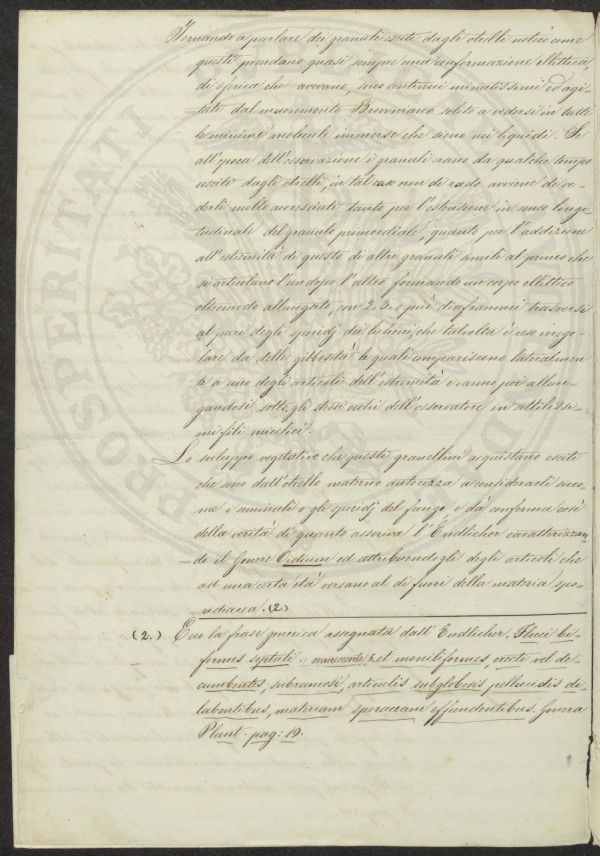 Tornando a parlare dei granuli esciti dagli otrelli noterò come
questi prendano quasi sempre una conformazione ellittica,
di sferica che avevano, sino contenuti minutissimi ed agi-
tati dal movimento Browniano solito a vedersi in tutte
le minime molecule immerse che sieno nei liquidi. Se
all'epoca dell'osservazione i granuli erano da qualche tempo
esciti dagli otrelli, in tal caso non di rado avviene di ve-
derli molto accresciuti tanto per l'estensione in senso longi-
tudinale del granulo primordiale, quanto per l'addizione
all'estremità di questo di altri granuli simili al primo che
si articolano l'un dopo l'altro formando un corpo ellittico
oltremodo allungato, con 2, 3, o più diaframmi trasversi
al pari degli sporidj dei che talvolta è reso irrego-
lare da delle gibbosità le quali compariscono lateralmen-
te a uno degli articoli dell'estremità e vanno poi allun-
gandosi sotto gli stessi occhi dell'osservatore in sottilissi-
mi fili micelici.
Lo sviluppo vegetativo che questi granellini acquistano esciti
che sono dall'otrello materno autorizza a considerarli sicco-
me i seminuli o gli sporidj del fungo, e dà conferma così
della verità di quanto asseriva l'Endlicher caratterizzan-
do il Genere Oidium ed attribuendogli degli articoli che
ad una certa età versano al di fuori della materia spo-
racea. (2)
(2.) Ecco la frase generica assegnata dall'Endlicher. Flocci bi-
formes septati; et moniliformes, erecti vel de-
cumbentes, subramosi, articulis subglobosis pellucidis di-
labentibus, materiam sporaceam effundentibus. Genera
Plant. pag: 19.
PROSPERITATI